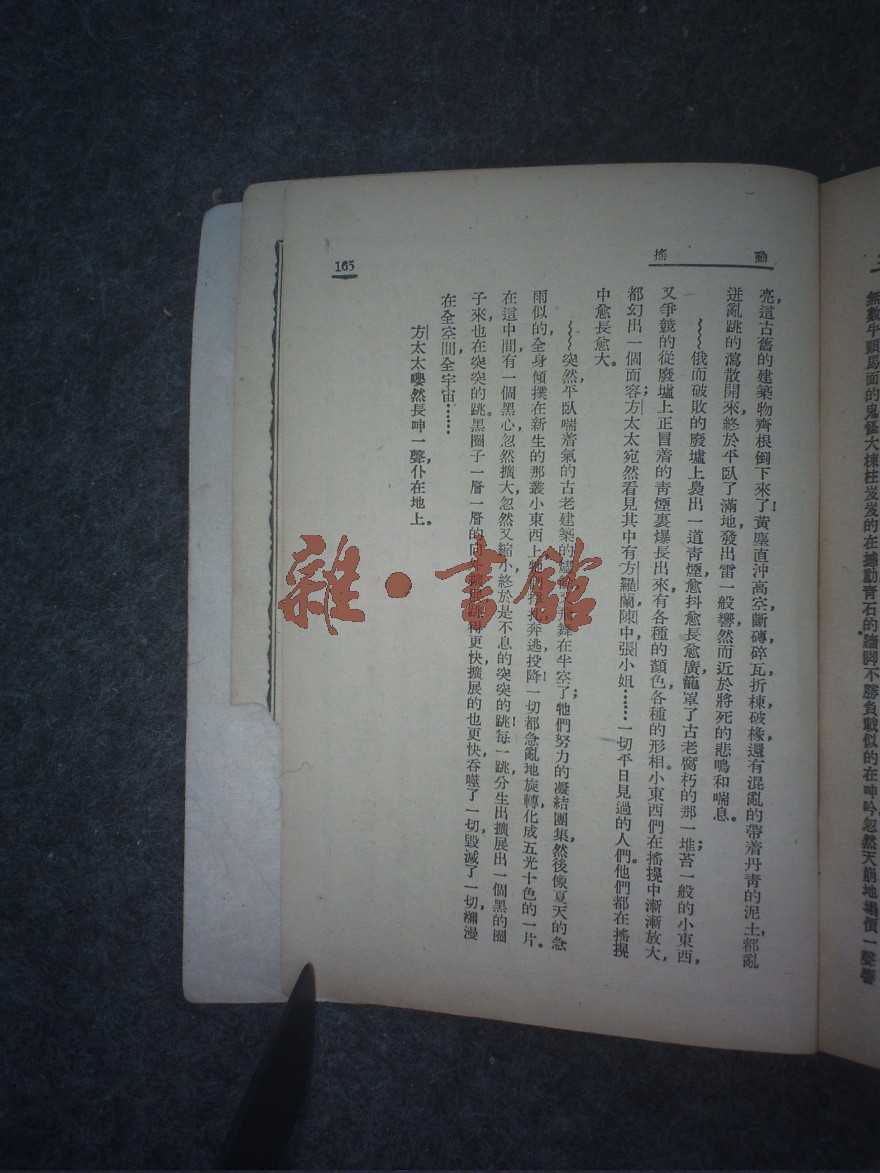 無數牛頭馬面的鬼怪大棟柱岌岌的在撼動青石的牆脚不勝負載似的在呻吟忽然天崩地塌價一聲響
動搖
亮,這古舊的建築物齊根倒下來了!黃塵直沖高空,斷磚,碎瓦,折棟,破椽,還有混亂的帶着丹靑的泥土,都亂
迸亂跳的瀉散開來,終於平臥了滿地,發出雷一般響,然而近於將死的悲鳴和喘息。
~~~俄而破敗的廢墟上裊出一道靑煙,愈抖愈長,愈廣,籠罩了古老腐朽的那一堆;苔一般的小東西,
又爭競的從廢墟上正冒着的靑煙裏爆長出來,有各種的顏色,各種的形相。小東西們在搖擺中漸漸放大,
都幻出一個面容;方太太宛然看見其中有方羅蘭,陳中,張小姐……一切平日見過的人們。他們都在搖擺
中愈長愈大。
~~~突然,平臥喘着氣的古老建築的 飛舞在半空了;牠們努力的凝結團集,然後像夏天的急
雨似的,全身傾撲在新生的那叢小東西上。 奔逃,投降!一切都急亂地旋轉,化成五光十色的一片。
在這中間,有一個黑心,忽然擴大,忽然又縮小,終於是不息的突突的跳!每一跳,分生出擴展出一個黑的圈
子來,也在突突的跳。黑圈子一層一層的向 得更快,擴展的也更快,吞噬了一切,毀滅了一切,瀰漫
在全空間,全宇宙……
方太太嚶然長呻一聲,仆在地上。
165
雜·書館